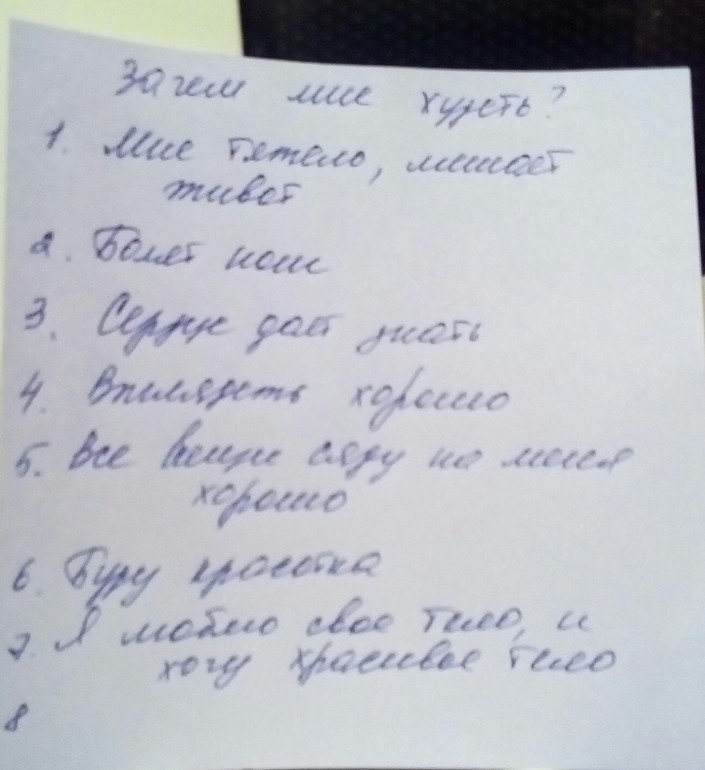 Зачем мне худеть?
1. Мне тяжело, мешает
живот
2. Болят ноги
3. Сердце дает знать
4. Выглядеть хорошо
5. Все вещи сяду на меня
хорошо
6. Буду красотка
7. Я люблю свое тело, и
хочу красивое тело
8